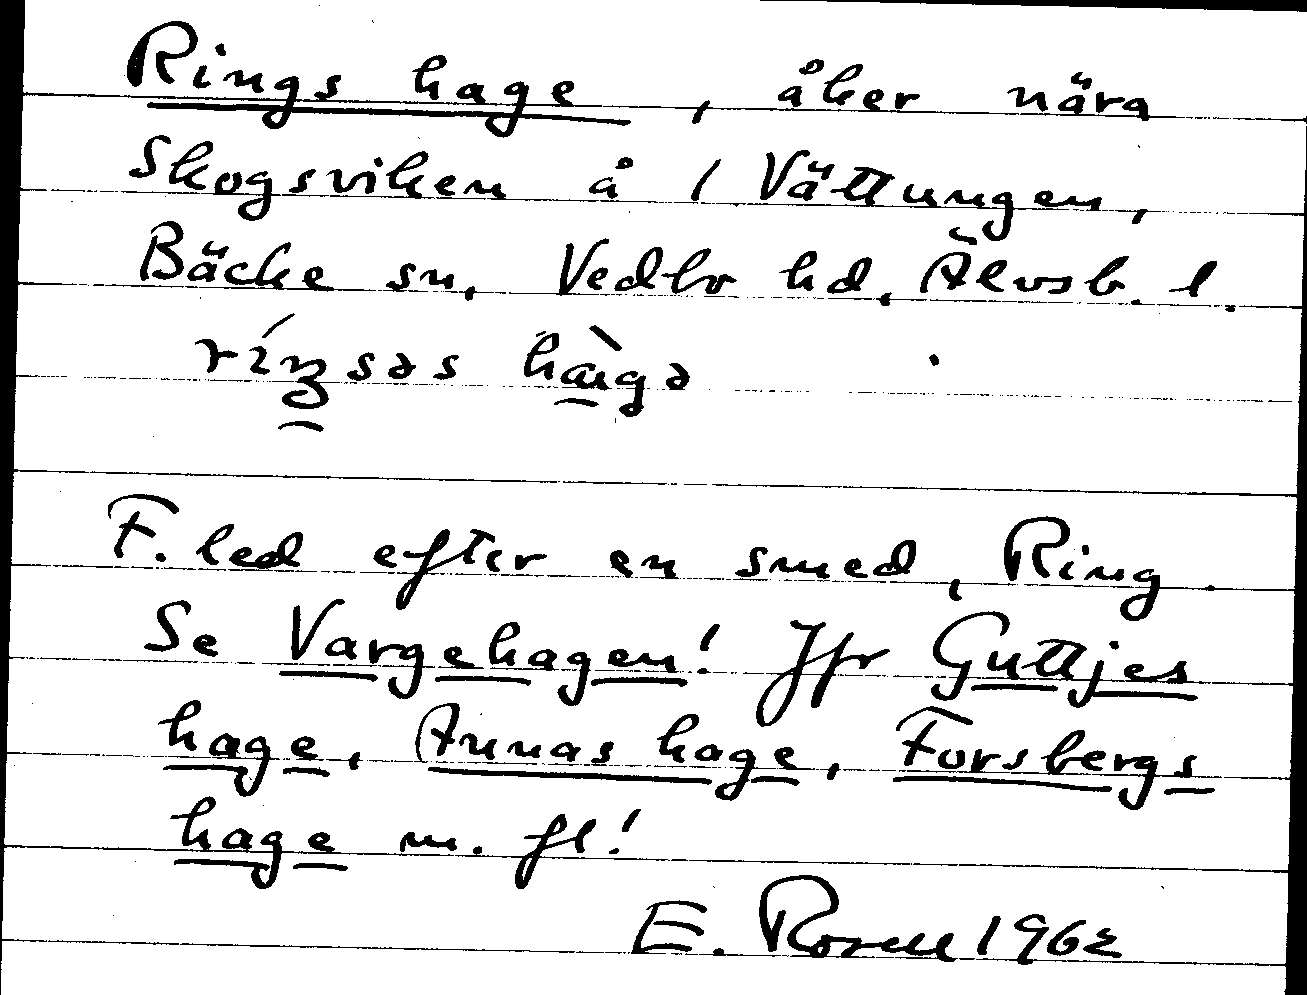 Rings hage, åker nära
Skogsviken å 1 Vättungen,
Bäcke sn, Vedbo hd, Älvsb. l.
F. led efter en smed, Ring.
Se Vargehagen! Jfr Guttjes
hage, Annas hage, Forsbergs
hage m. fl!
E. Rosell 1962